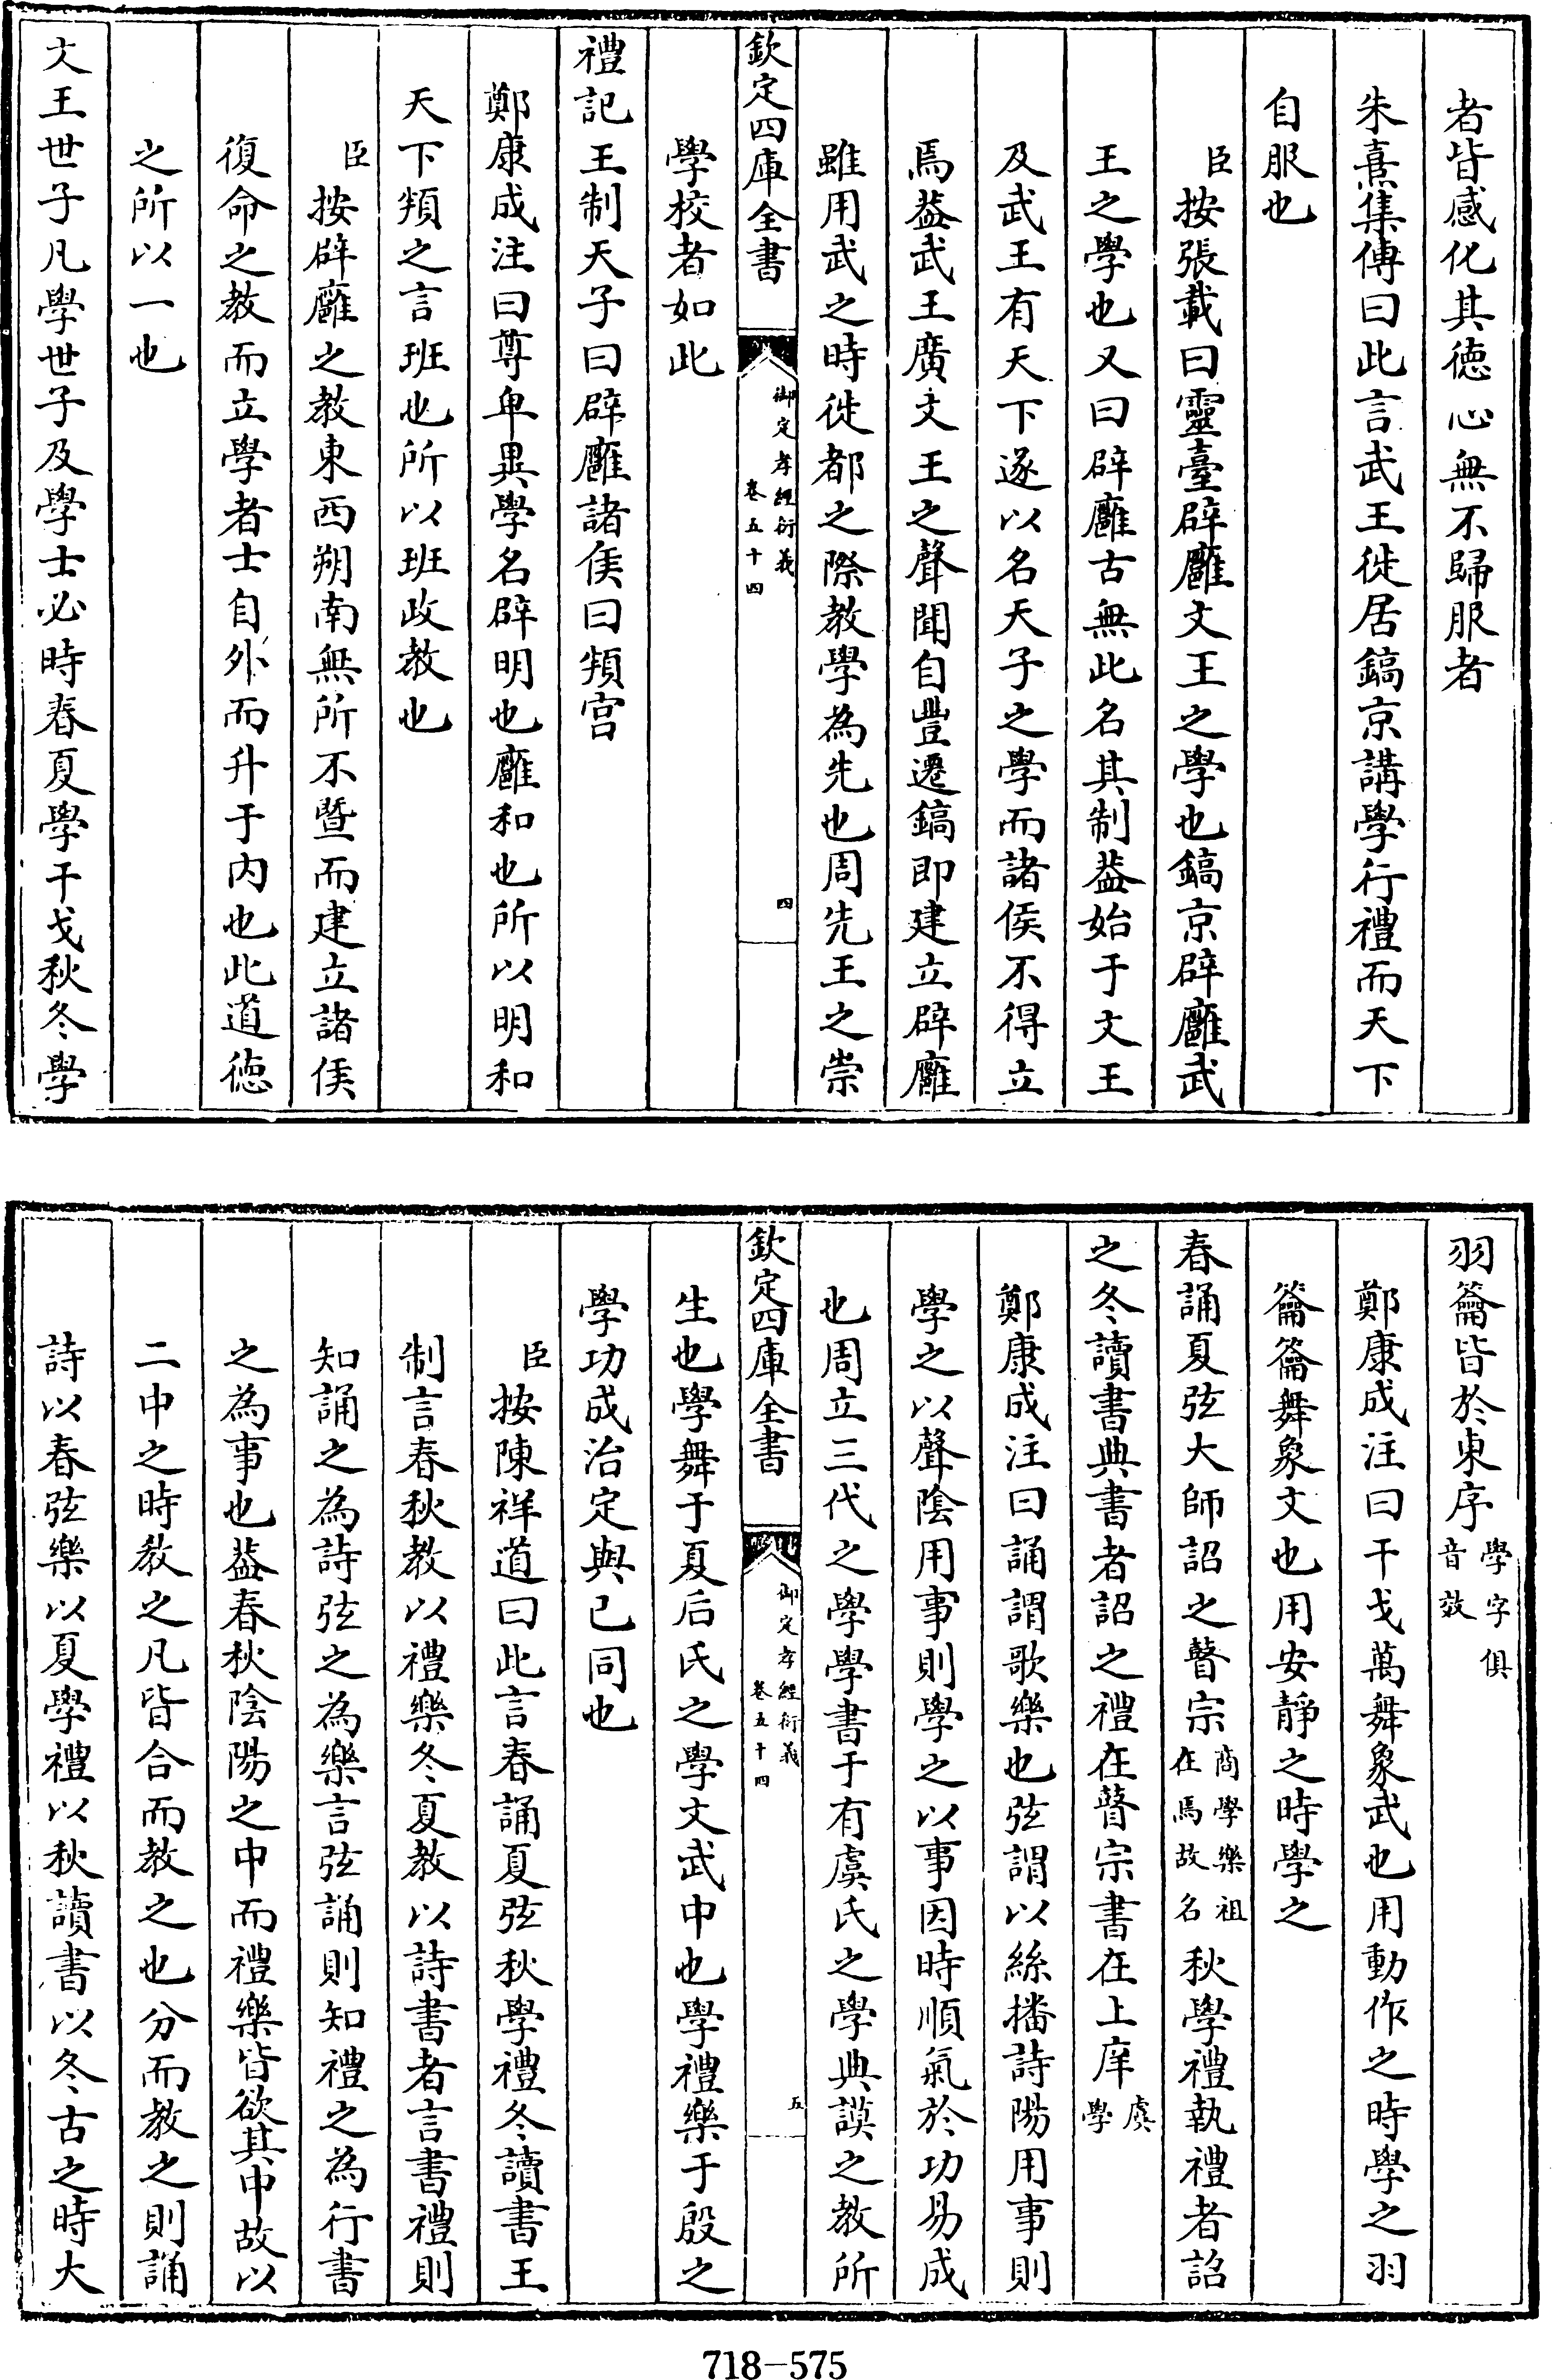 者皆感化其徳心無不歸服者
朱熹集傳曰此言武王徙居鎬京講學行禮而天下
自服也
臣按張載曰靈臺辟廱文王之學也鎬京辟廱武
王之學也又曰辟廱古無此名其制葢始于文王
及武王有天下遂以名天子之學而諸侯不得立
焉葢武王廣文王之聲聞自豐遷鎬即建立辟廱
雖用武之時徙都之際教學為先也周先王之崇
欽定四庫全書
御定孝經衍義
卷五十四
四
學校者如此
禮記王制天子曰辟廱諸侯曰頖宮
鄭康成注曰尊卑異學名辟明也廱和也所以明和
天下頖之言班也所以班政教也
臣按辟廱之教東西朔南無所不暨而建立諸侯
復命之教而立學者士自外而升于内也此道徳
之所以一也
文王世子凡學世子及學士必時春夏學干戈秋冬學
羽籥皆於東序學字俱音效
鄭康成注曰干戈萬舞象武也用動作之時學之羽
籥籥舞象文也用安靜之時學之
春誦夏弦大師詔之瞽宗商學樂祖在焉故名秋學禮執禮者詔
之冬讀書典書者詔之禮在瞽宗書在上庠虞學
鄭康成注曰誦謂歌樂也弦謂以絲播詩陽用事則
學之以聲陰用事則學之以事因時順氣於功易成
也周立三代之學學書于有虞氏之學典謨之教所
欽定四庫全書
御定孝經衍義
卷五十四
五
生也學舞于夏后氏之學文武中也學禮樂于殷之
學功成治定與已同也
臣按陳祥道曰此言春誦夏弦秋學禮冬讀書王
制言春秋教以禮樂冬夏教以詩書者言書禮則
知誦之為詩弦之為樂言弦誦則知禮之為行書
之為事也葢春秋陰陽之中而禮樂皆欲其中故以
二中之時教之凡皆合而教之也分而教之則誦
詩以春弦樂以夏學禮以秋讀書以冬古之時大
718-575